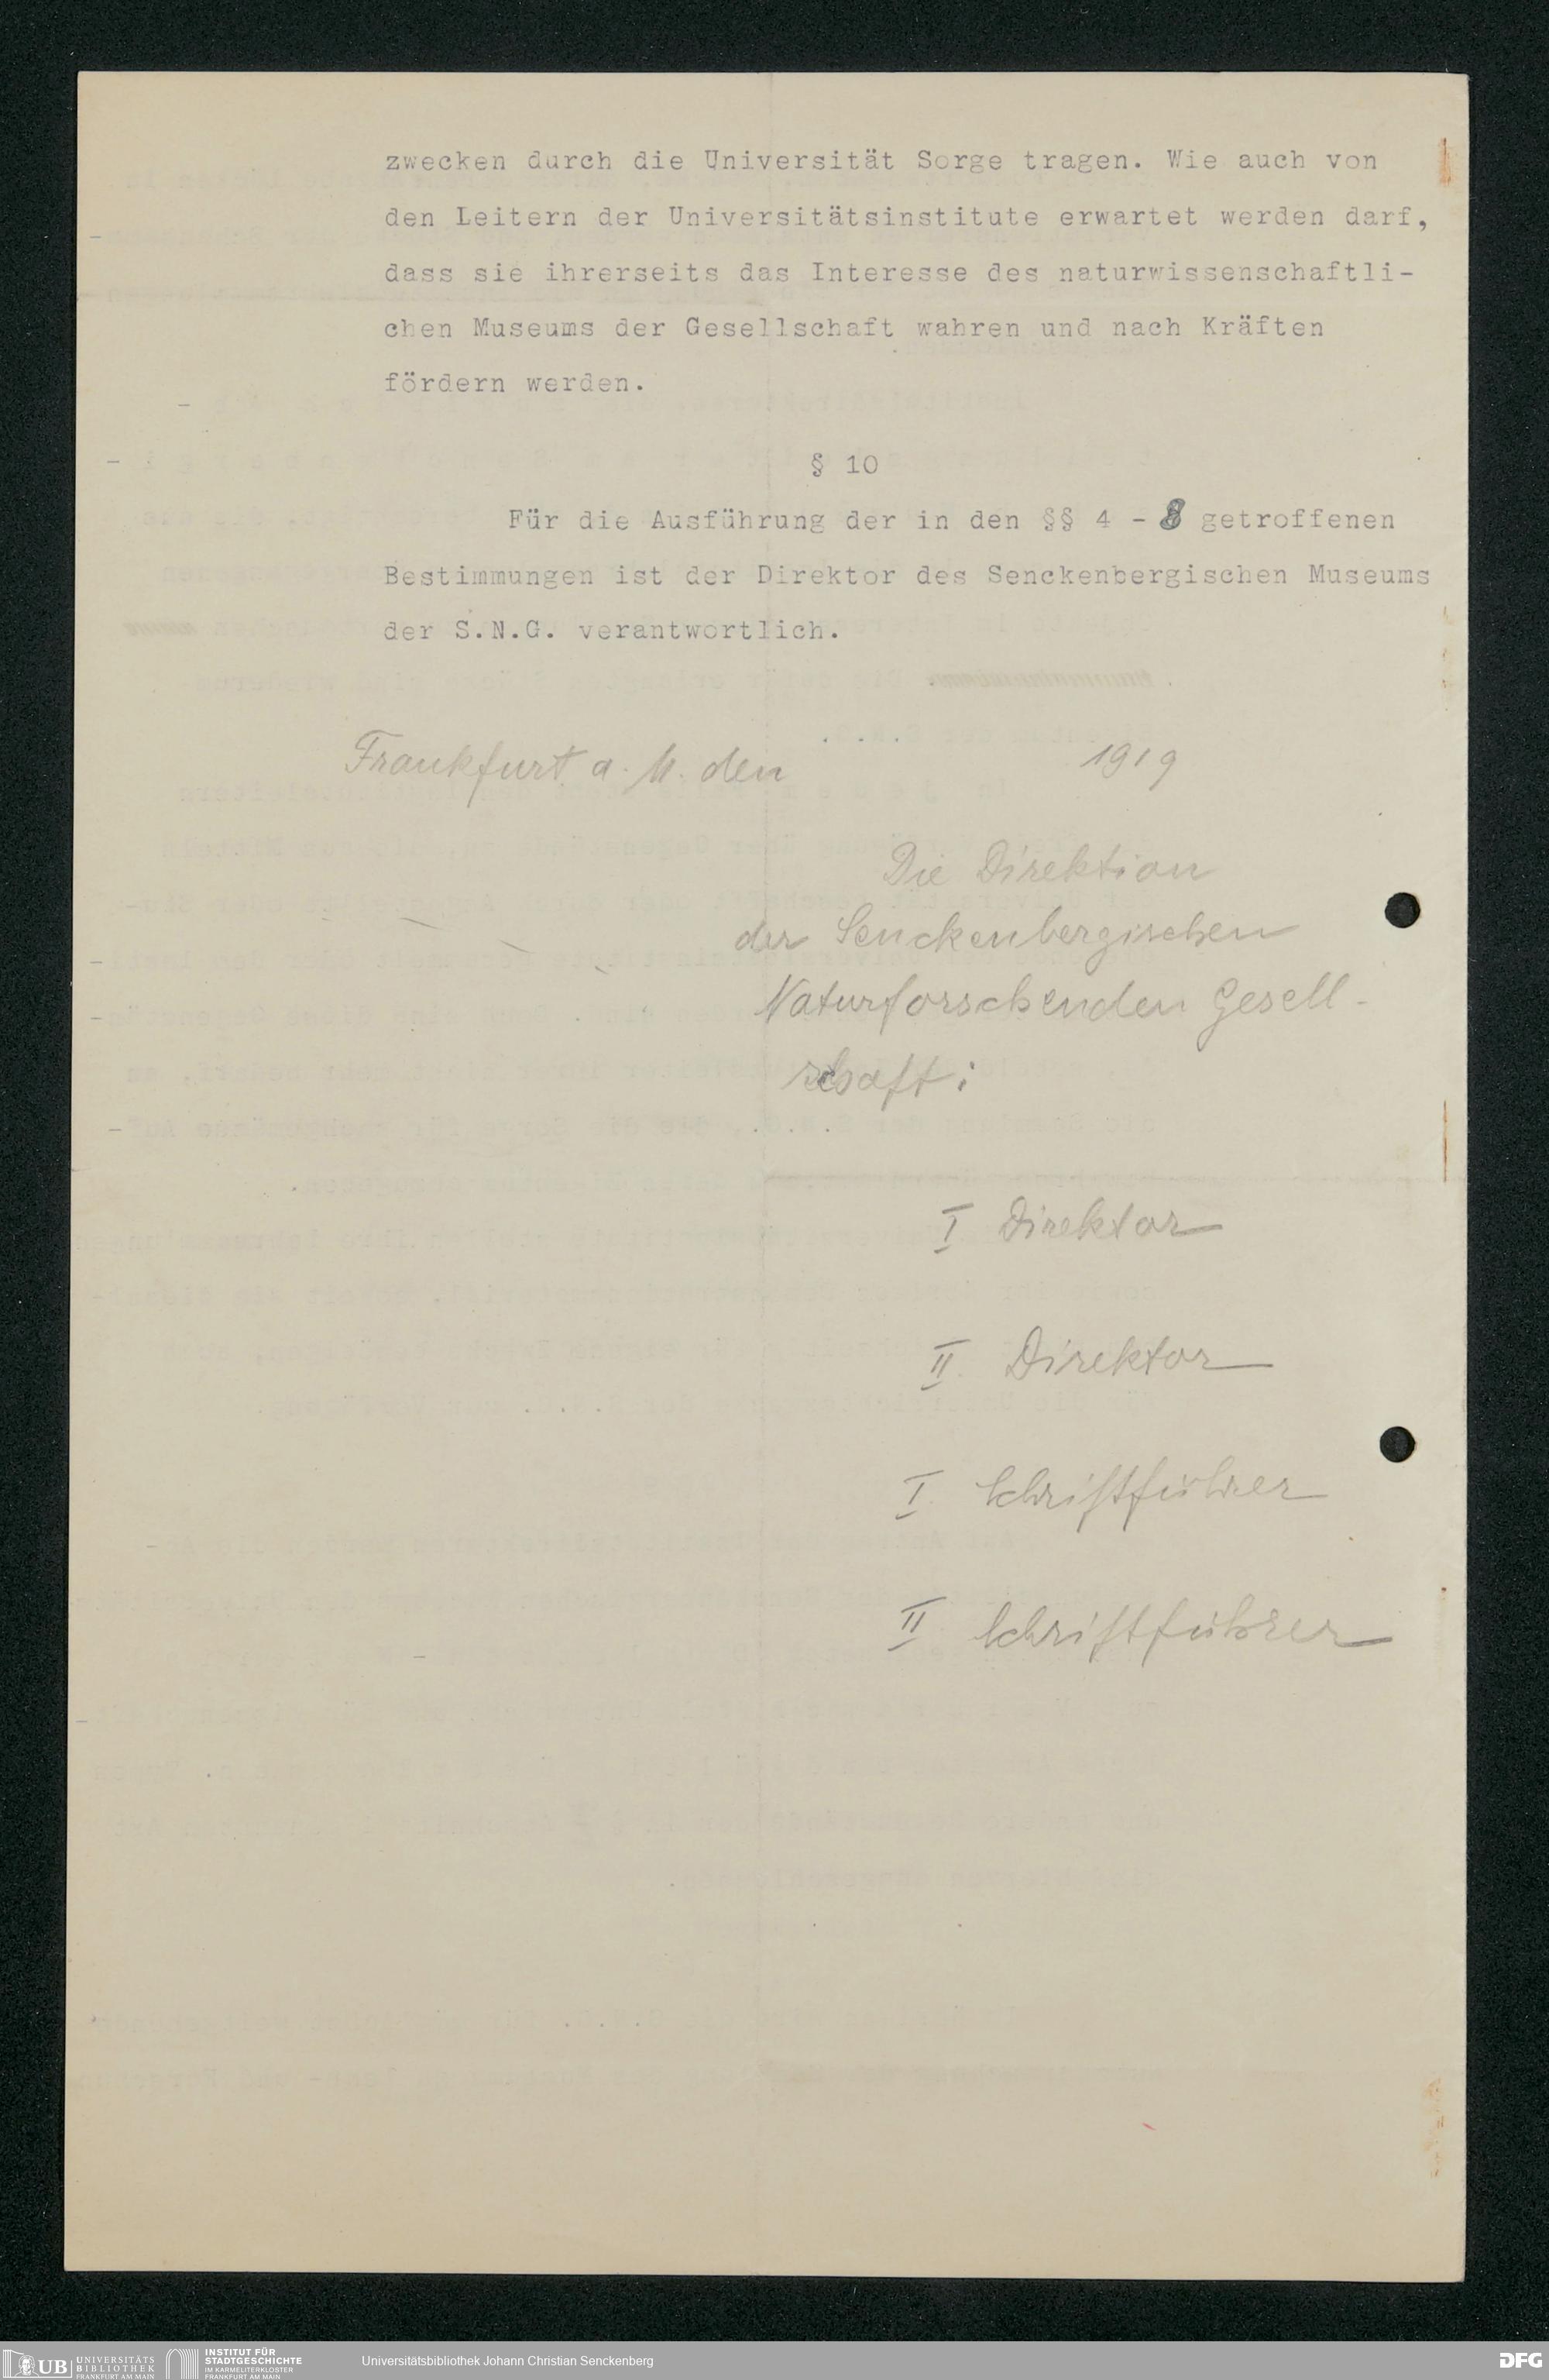 zwecken durch die Universität Sorge tragen. Wie auch von
den Leitern der Universitätsinstitute erwartet werden darf,
dass sie ihrerseits das Interesse des naturwissenschaftli-
chen Museums der Gesellschaft wahren und nach Kräften
fördern werden.
§ 10
Für die Ausführung der in den §§ 4 - 8 getroffenen
Bestimmungen ist der Direktor des Senckenbergischen Museums
der S.N.G. verantwortlich.
Frankfurt a. M. den 1919
Die Direktion
der Senckenbergischen
Naturforschenden Gesell-
schaft:
I Direktor
II Direktor
I Schriftführer
II Schriftführer
UB UNIVERSITÄTS
BIBLIOTHEK
FRANKFURT AM MAIN
INSTITUT FÜR
STADTGESCHICHTE
IM KARMELITERKLOSTER
FRANKFURT AM MAIN
Universitätsbibliothek Johann Christian Senckenberg
DFG